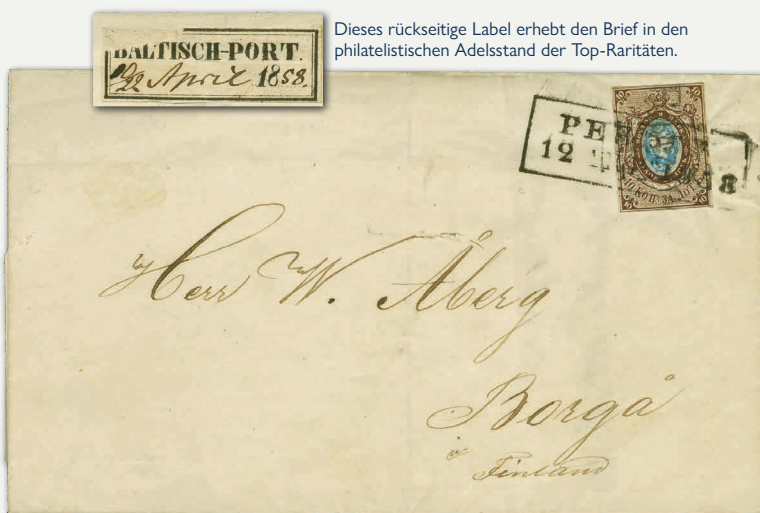 BALTISCH-PORT.
22 April 1858.
Dieses rückseitige Label erhebt den Brief in den
philatelistischen Adelsstand der Top-Raritäten.
12
8
10 КОП. ЗА ЛОТЪ
Herr W. Åberg
Borgå
i
Finland